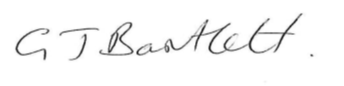 G J Bartlett.